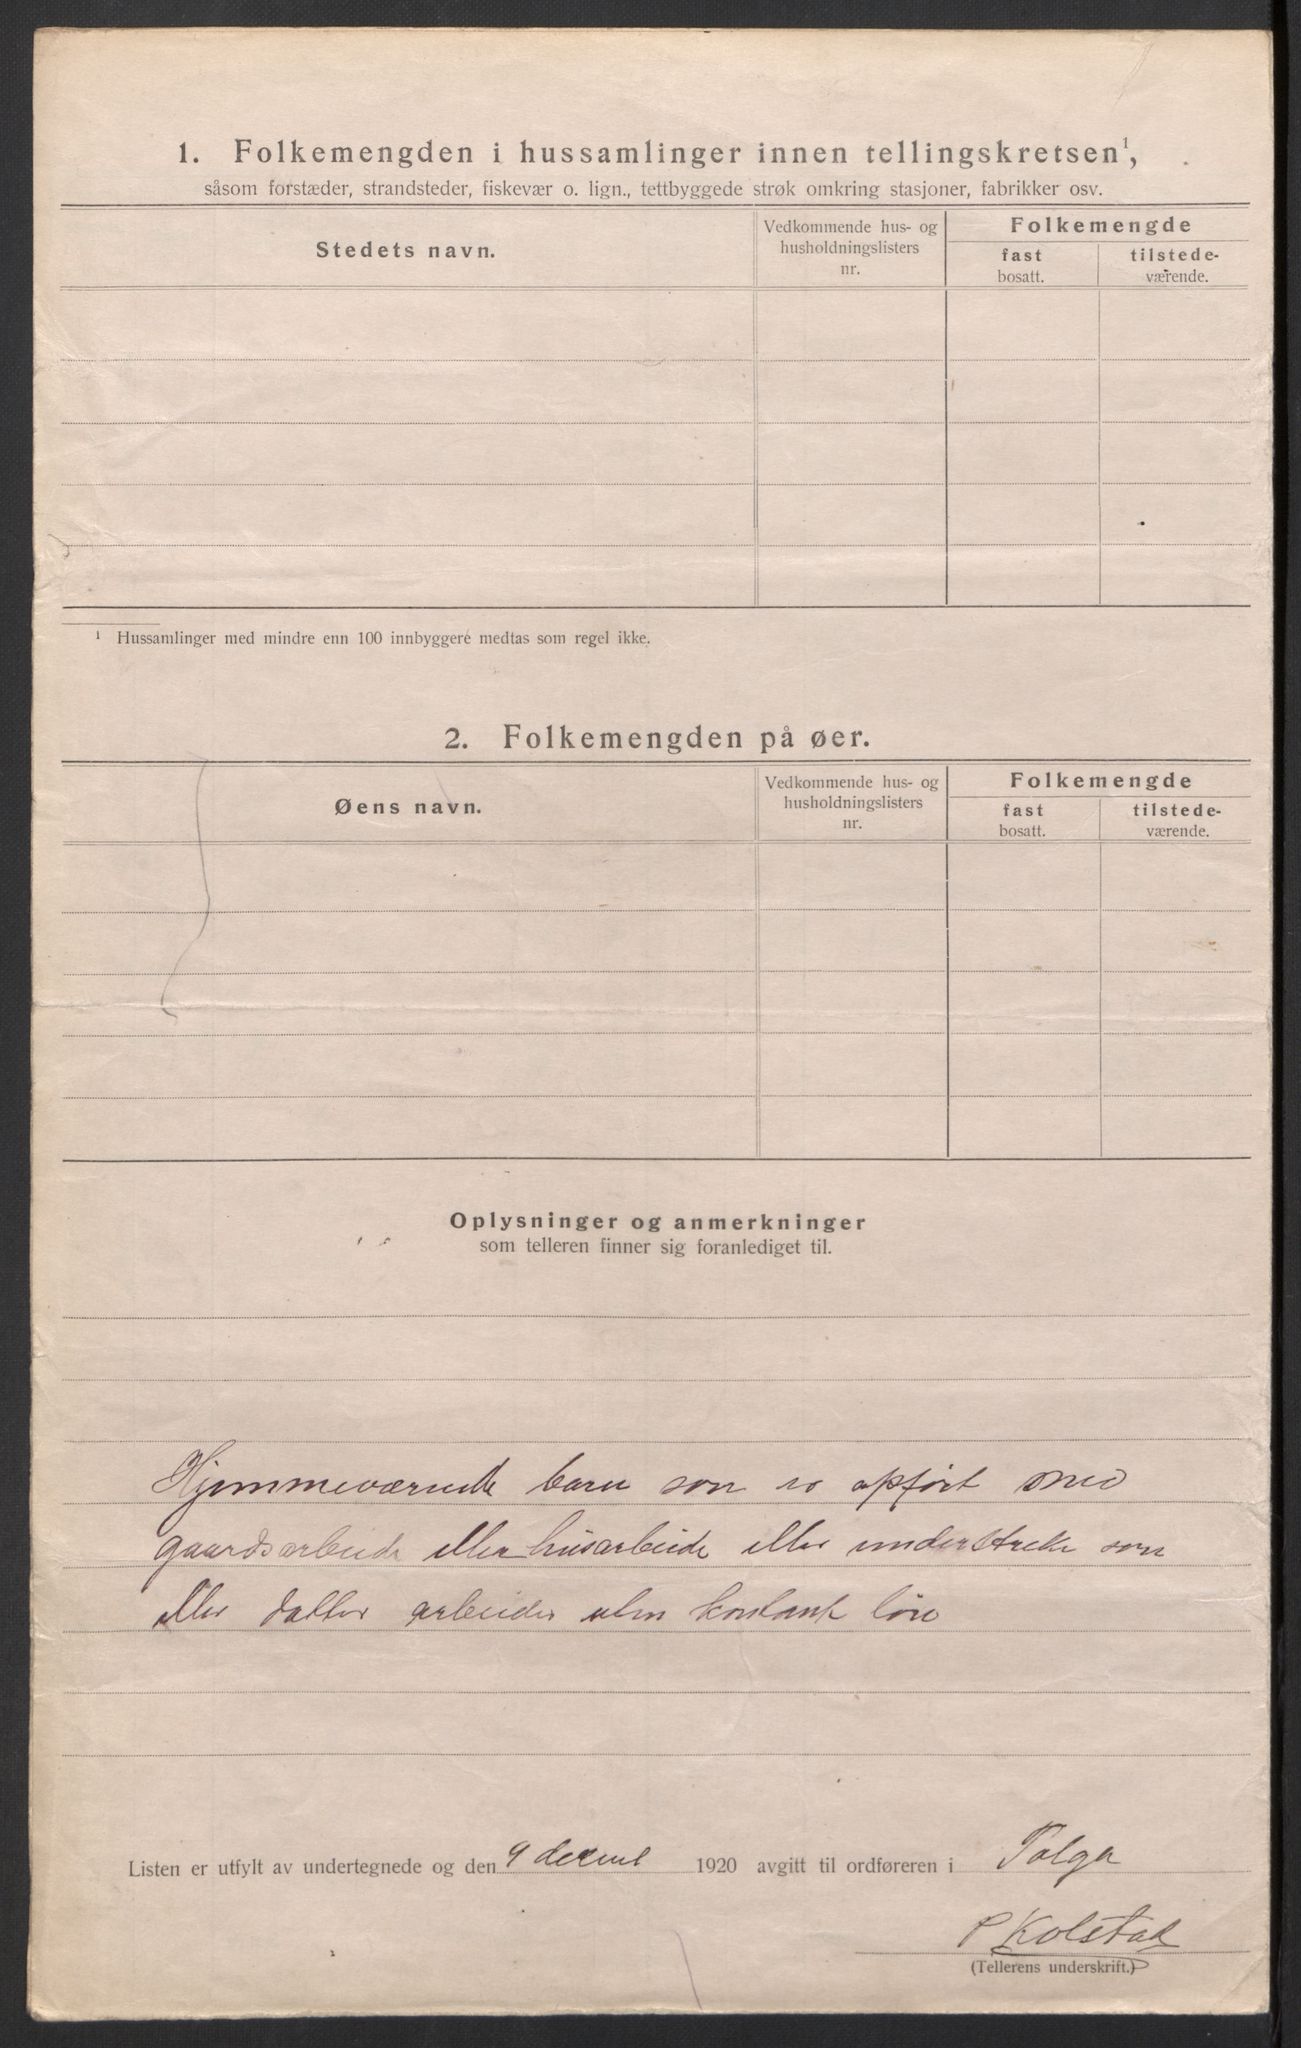 1. Folkemengden i hussamlinger innen tellingskretsen¹,
såsom forstæder, strandsteder, fiskevær o. lign., tettbyggede strøk omkring stasjoner, fabrikker osv.
Stedets navn.
Vedkommende hus- og
husholdningslisters
nr.
Folkemengde
fast
bosatt.
tilstede-
værende.
¹ Hussamlinger med mindre enn 100 innbyggere medtas som regel ikke.
2. Folkemengden på øer.
Øens navn.
Vedkommende hus- og
husholdningslisters
nr.
Folkemengde
fast
bosatt.
tilstede-
værende.
Oplysninger og anmerkninger
som telleren finner sig foranlediget til.
Hjemmeværende barn som er opført med
gaardsarbeide eller husarbeide eller understreke søn
eller datter arbeider uten kontant løn
Listen er utfylt av undertegnede og den 9 decemb 1920 avgitt til ordføreren i Tolga
P Kolstad
(Tellerens underskrift.)